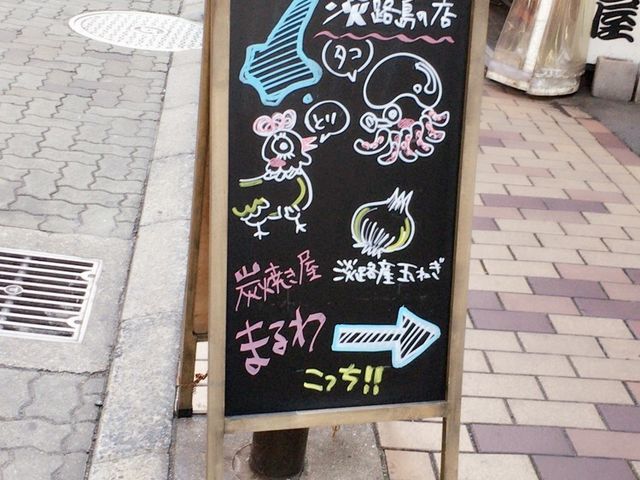 淡路島の店
タコ
とり
淡路産玉ねぎ
炭焼き屋
まるわ
こっち!!
屋